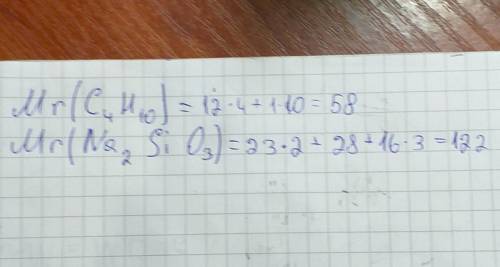 Mr(C₄H₁₀) = 12·4+1·10 = 58
Mr(Na₂SiO₃) = 23·2+28+16·3 = 122